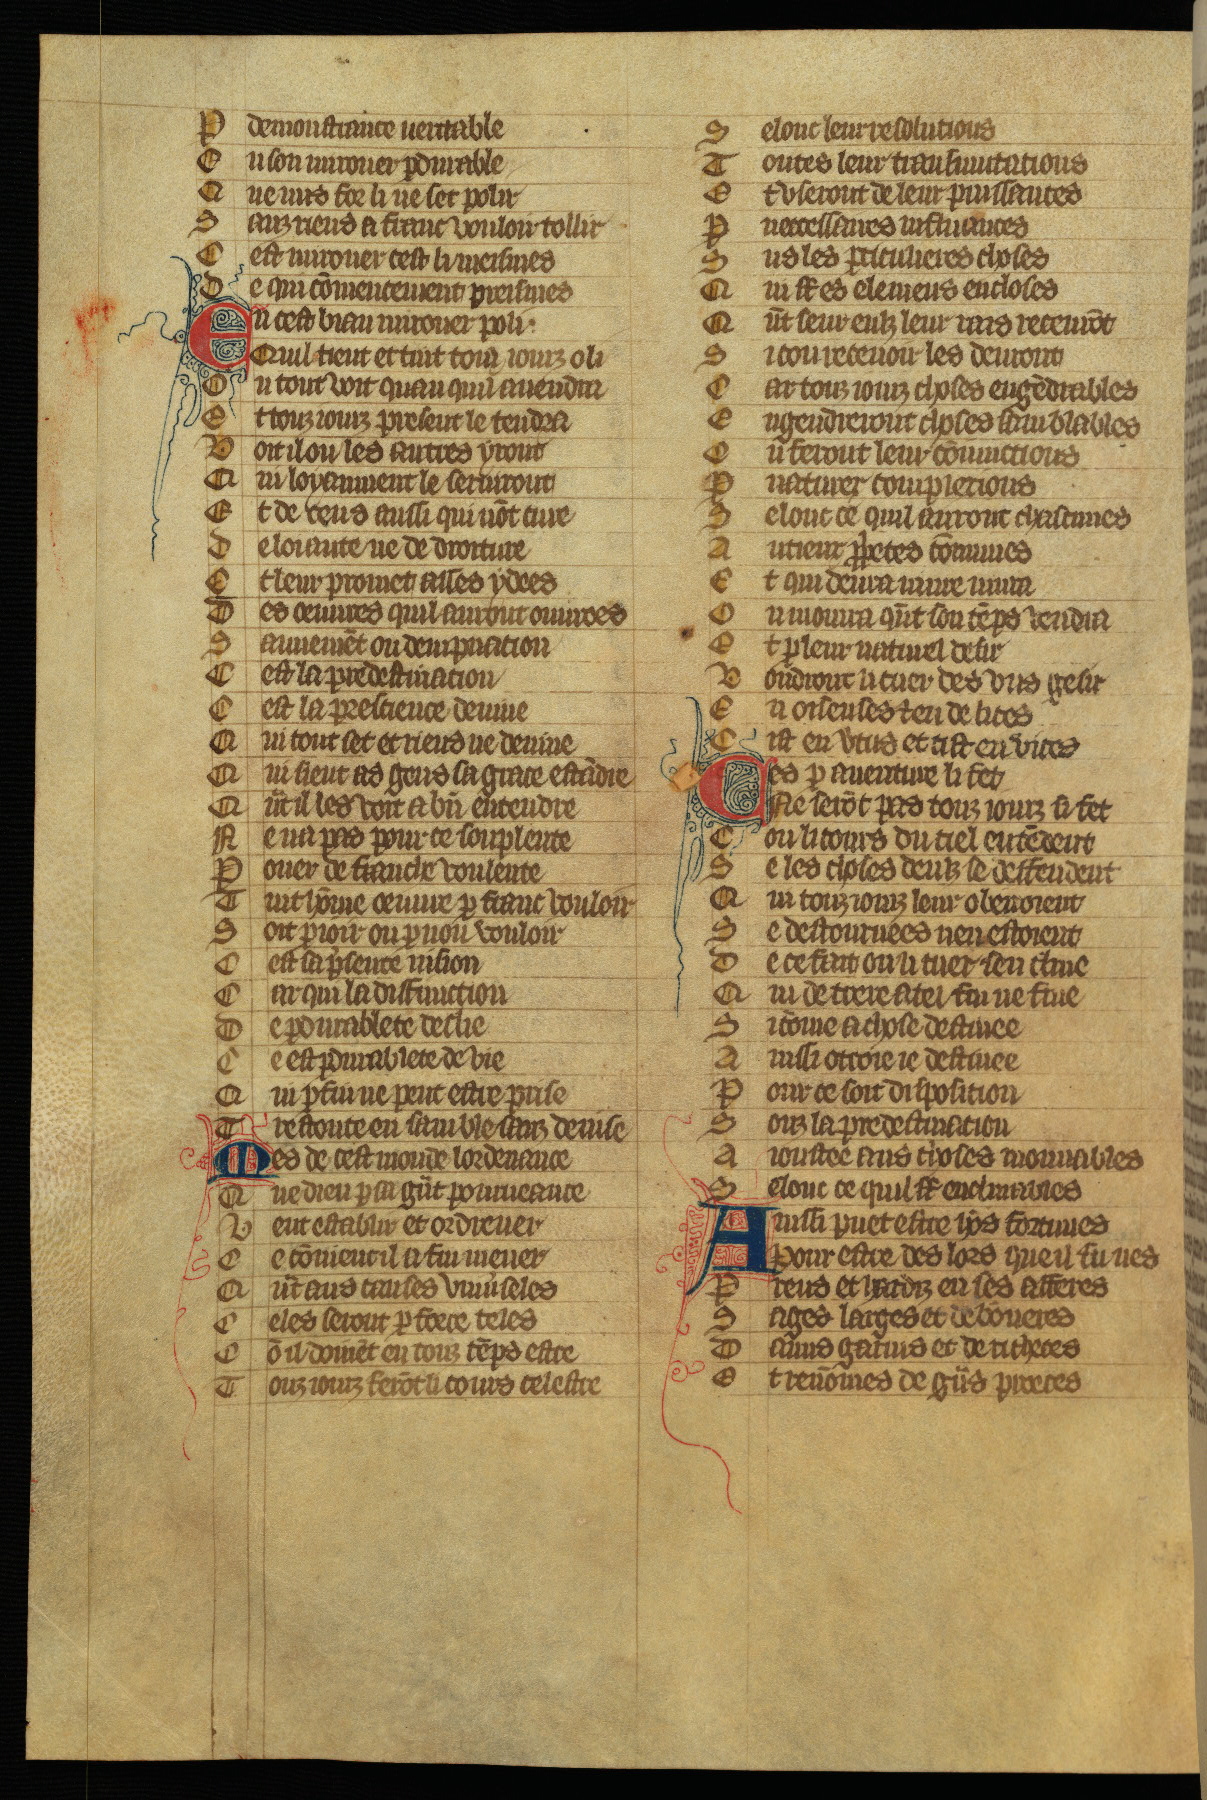 P demonstrance ueritable
E n son mirouer p̲durable
Q ue nus fors li ne set polir
S anz riens a franc vouloir tollir
C est mirouer cest li meismes
D e qui cōmencement preismes
E n cest biau mirouer poli
Q uil tient et tint touz iourz o li
O u tout voit quan quil auendra
E t touz iourz present le tendra
V oit il ou les autres yront
Q ui loyaument le seruiront
E t de ceus aussi qui nōt cure
D e loiaute ne de droiture
E t leur promet en ses ydees
D es oeuures quil auront ouurees
S auuemēt ou dempnacion
C est la predestinacion
C est la prescience deuine
Q ui tout set et riens ne deuine
Q ui sieut as gens sa grace estādre
Q ūt il les voit a biī entendre
N e na pas pour ce souplente
P ouer de franche voulente
T uit hōme oeuure p̲ franc vouloir
S oit p̲ ioir ou p̲ nōu vouloir
C est sa p̄sente uision
C ar qui la diffinicion
D e p̲durablete deslie
C e est p̲durablete de vie
Q ui p̲ fin ne peut estre prise
T restoute en samble sanz deuise
M es de cest monde lordenance
Q ue dieu p̲ sa gūt porueance
V eut establir et ordrener
C e cōuient il a fin mener
Q ūt aus causes vniuseles
C eles seront p̲ force teles
C ō il doiuēt en touz tēps estre
T ouz iourz ferōt li cours celestre
S elonc leur resolutions
T outes leur transmutations
E t vseront de leur puissances
P neccessaires influances
S us les p̲ticulieres choses
Q ui s̄t es elemens encloses
Q ūt seur eulz leur rais receurōt
S i cōu receuoir les deuront
C ar touz iourz choses engēdrables
E ngendreront choses samblables
O u feront leur cōmixtions
P naturex complexions
S elonc ce quil auront chascunes
A utieux p̲p̲etes cōmunes
E t qui deura mure mura
O u mourra qūt son tēps vendra
E t p̲ leur naturel desir
V oūdront li cuer des vns gesir
E n oiseuses ⁊ en delites
C ist en v̄tus et cist en vices
M es p̲ auenture li fet
Ne serōt pas touz iourz si fet
C ou li cours du ciel entēdent
S e les choses deulz se deffendent
Q ui touz iourz leur obeiroient
S e destournees nen estoient
D e ce fait ou li cuer sen cline
Q ui de trere a tel fin ne fine
S i cōme a chose destinee
A inssi otroie ie destinee
P our ce soit disposition
S ouz la predestinacion
A ioustee aus choses mouuables
S elonc ce quil s̄t enclinables
A inssi puet estre hōs fortunes
Pour estre des lors que il fu nes
P reus et hardiz en ses afferes
S ages larges et debōneres
D amis garnis et de richeces
E t renōmes de gn̄s proeces